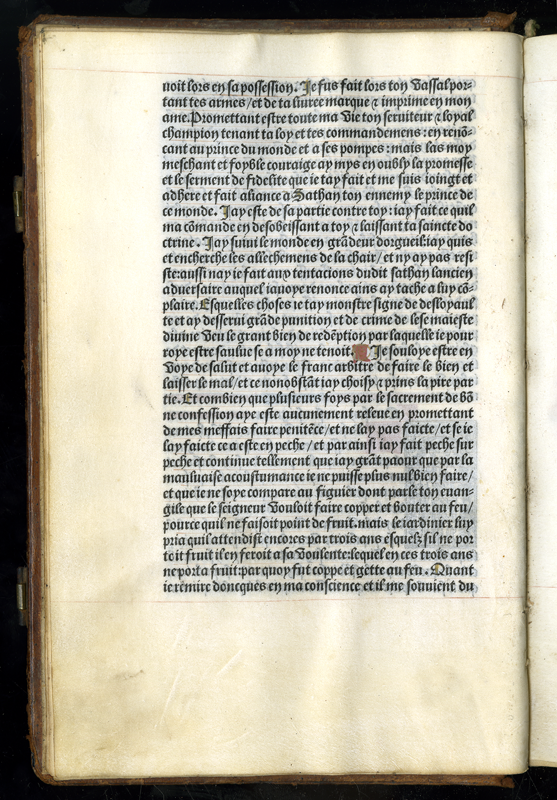 noit lors en sa possession. Je fus fait lors ton vassal por-
tant tes armes / et de ta liuree marque ⁊ imprime en mon
ame. Promettant estre toute ma vie ton seruiteur ⁊ loyal
champion tenant ta loy et tes commandemens : en renõ-
cant au prince du monde et a ses pompes : mais las moy
meschant et foyble couraige ay mys en oubly la promesse
et le serment de fidelite que ie tay fait et me suis ioingt et
adhere et fait aliance a Sathan ton ennemy le prince de
ce monde. Jay este de sa partie contre toy : iay fait ce quil
ma cõmande en desobeissant a toy ⁊ laissant ta saincte do
ctrine. Jay suiui le monde en grãdeur dorgueil: iay quis
et encherche les allechemens de la chair / et ny ay pas resi
ste: aussi nay ie fait aux tentacions dudit sathan lancien
aduersaire auquel iauoye renonce ains ay tache a luy cõ-
plaire. Esquelles choses ie tay monstre signe de desloyaul
te et ay desserui grãde punition et de crime de lese maieste
diuine veu le grant bien de redẽption par laquelle ie pour
roye estre saulue se a moy ne tenoit. Je souloye estre en
voye de salut et auoye le franc arbitre de faire le bien et
laisser le mal / et ce nonobstãt iay choisy ⁊ prins la pire par
tie. Et combien que plusieurs foys par le sacrement de bõ
ne confession aye este aucunement releue en promettant
de mes meffais faire penitẽce / et ne lay pas faicte / et se ie
lay faicte ce a este en peche / et par ainsi iay fait peche sur
peche et continue tellement que iay grãt paour que par la
mauluaise acoustumance ie ne puisse plus nul bien faire /
et que ie ne soye compare au figuier dont parle ton euan-
gile que le seigneur vouloit faire copper et bouter au feu /
pource quil ne faisoit point de fruit. mais le iardinier luy
pria quil attendist encores par trois ans esquelz sil ne por
toit fruit il en feroit a sa voulente: lequel en ces trois ans
ne porta fruit: par quoy fut coppe et gette au feu. Quant
ie remire doncques en ma conscience et il me souuient du